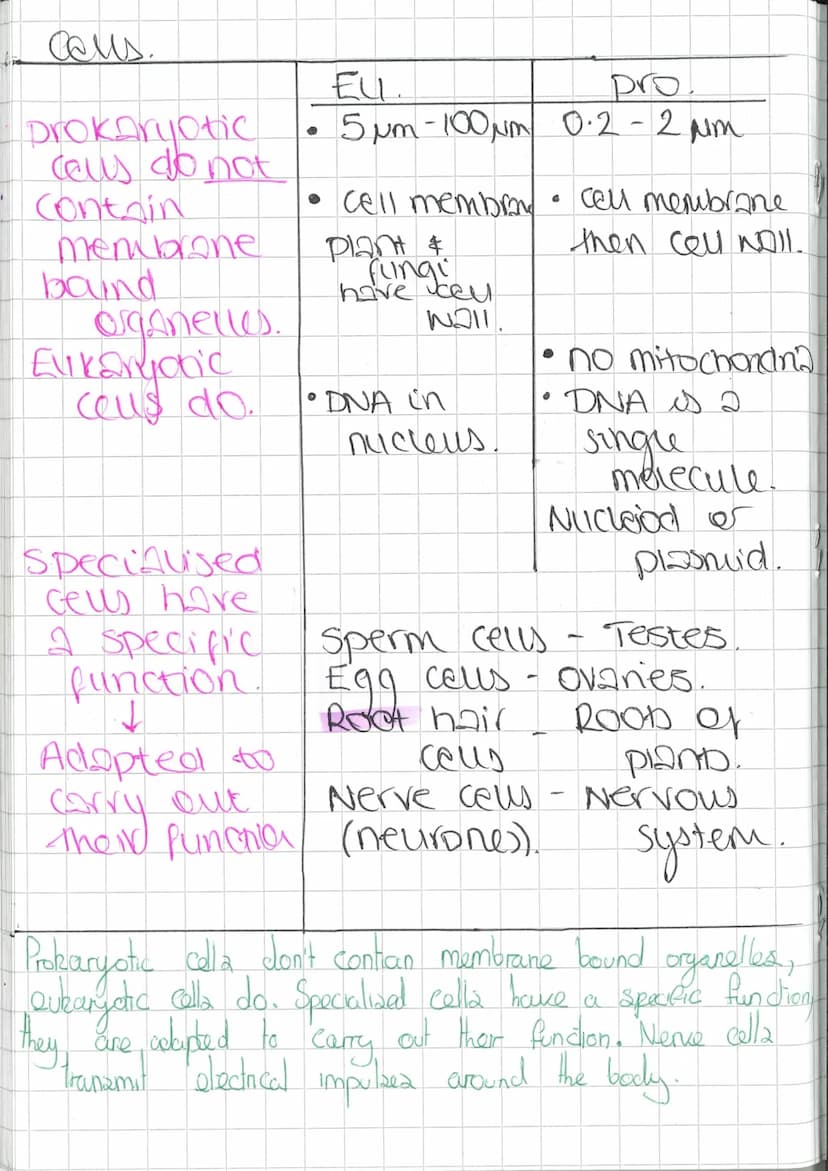 Cells.
Eu.
Pro.
Prokaryotic
cells do not
contain
membrane
baund
organelles.
Eukaryotic
cells do.
• 5 μm - 100 μm
0.2 - 2 μm
• cell membrane
plant &
fungi
have cell
wall.
• cell membrane
then cell wall.
• no mitochondria
• DNA in
nucleus.
• DNA is a
single
molecule.
Nucleiod or
plasmid.
Specialised
cells have
a specific
function.
↓
Adapted to
carry out
their function
Sperm cells - Testes.
Egg cells - ovaries.
Root hair - Roots of
cells plants.
Nerve cells - Nervous
(neurones). system.
Prokaryotic cells don't contian membrane bound organelles,
eukaryotic cells do. Specialised cells have a specific function,
they are adapted to carry out their function. Nerve cells
transmit electrical impulses around the body.